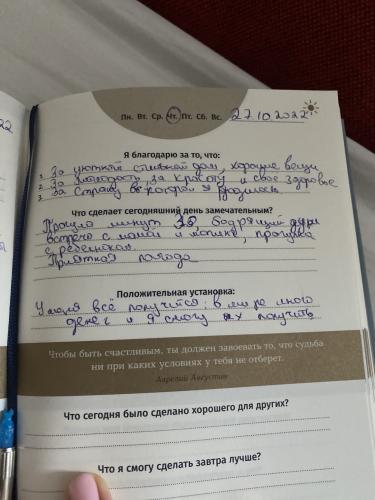 22
Пн. Вт. Ср. Чт. Пт. Сб. Вс. 27.10.2022
Я благодарю за то, что:
1. За уютный стильный дом, хорошие вещи
2. За молодость, за красоту и свое здоровье
3. За страну в которой я родилась
Что сделает сегодняшний день замечательным?
Прошло минут 30, бодрящий душ
встреча с мамой и прогулка
с ребёнком.
Приятная погода
Положительная установка:
У меня всё получится: в мире много
денег и я смогу их получить
Чтобы быть счастливым, ты должен завоевать то, что судьба
ни при каких условиях у тебя не отберет.
Аврелий Августин
Что сегодня было сделано хорошего для других?
Что я смогу сделать завтра лучше?